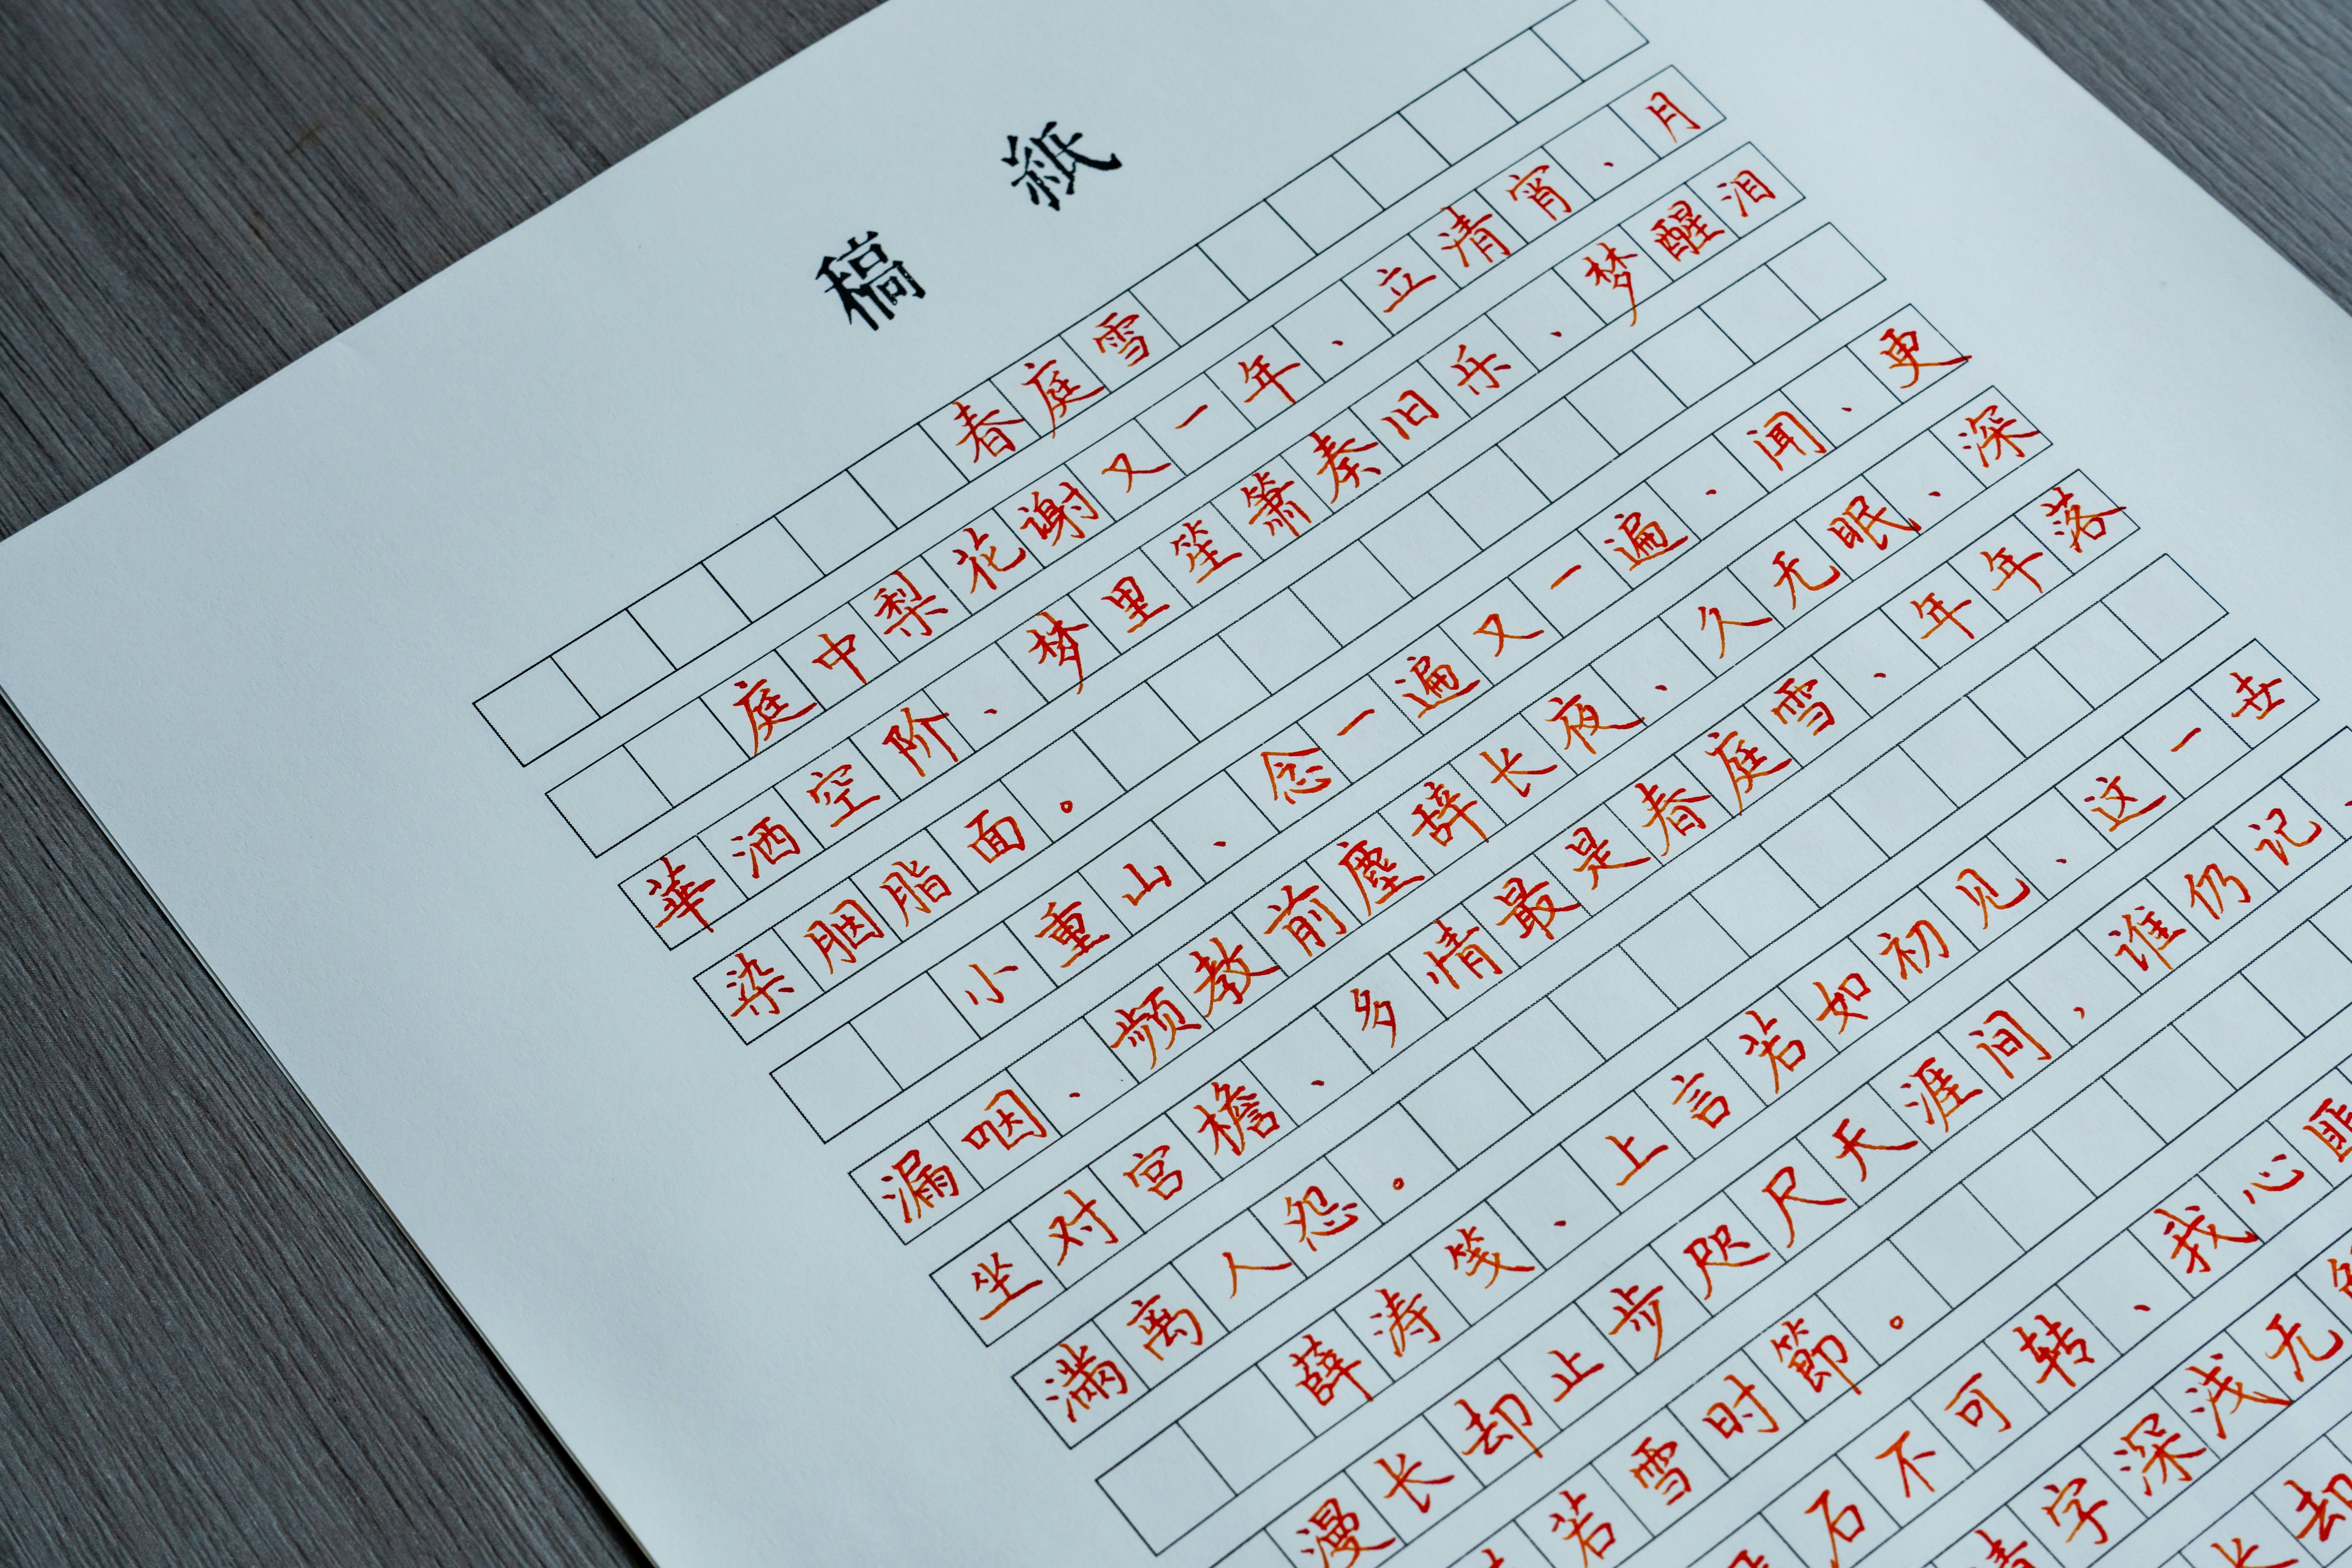 稿 紙
春庭雪
庭中梨花谢又一年、立清宵、月
華洒空阶、梦里笙箫奏旧乐、梦醒泪
染胭脂面。
小重山、念一遍又一遍、闻、更
漏咽、频教前塵辞长夜、久无眠、深
坐对宫檐、多情最是春庭雪、年年落
满离人怨。
薛涛笺、上言若如初见、这一世
漫长却止步咫尺天涯间,谁仍记、
若雪时節。
石不可转、我心匪
字深浅无
却